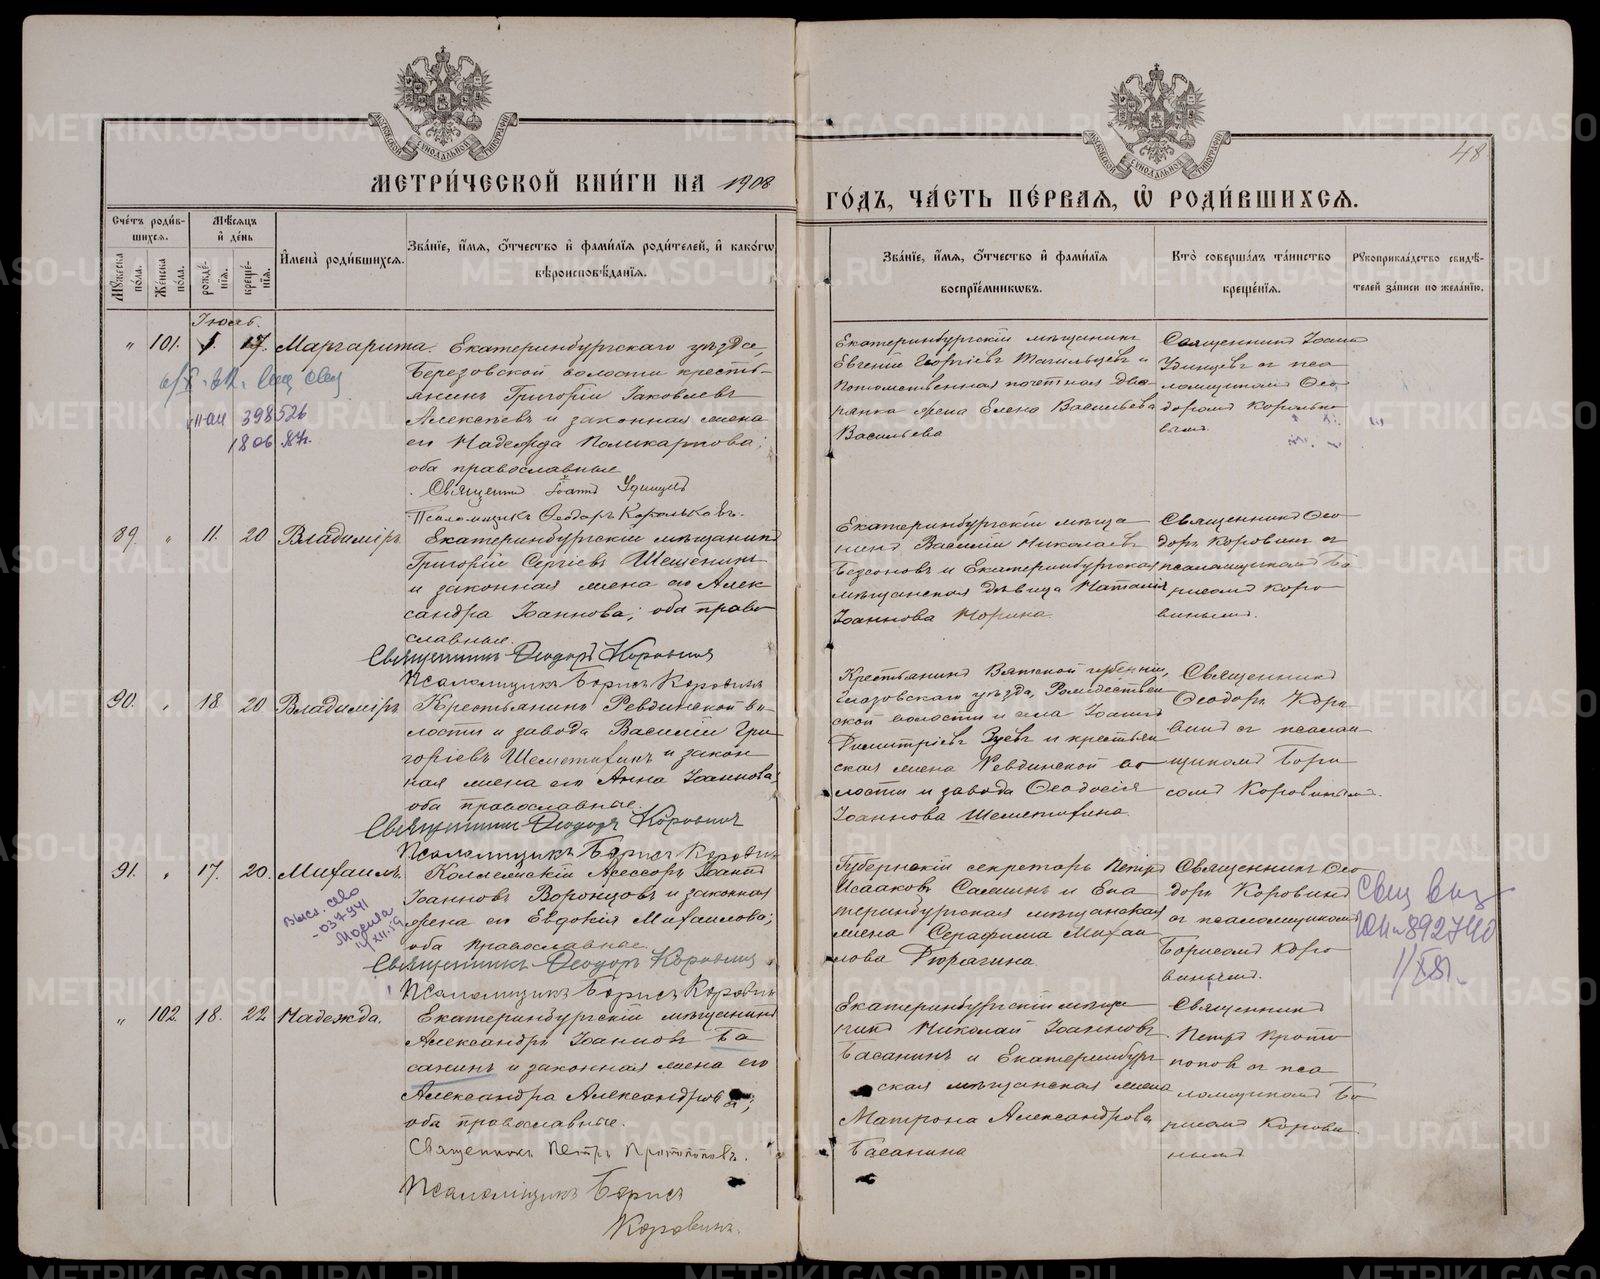 МЕТРИ́ЧЕСКОЙ КНИ́ГИ НА 1908
ГО́ДЪ, ЧА́СТЬ ПЕ́РВАЯ, Ѡ РОДИ́ВШИХСЯ.
48
Сче́тъ роди́в-
шихся.
Мѣ́сяцъ
и́ де́нь
Мꙋ́жеска
по́ла.
Же́нска
по́ла.
рожде́-
нїя.
креще́-
нїя.
И́мена̀ роди́вшихся.
Зва́нїе, и́мя, ѻ҆́тчество и҆ фами́лїя роди́телей, и҆ како́гѡ
вѣроисповѣ́данїя.
Зва́нїе, и́мя, ѻ҆́тчество и҆ фами́лїя
воспрїе́мниковъ.
Кто̀ соверша́лъ та́инство
креще́нїя.
Рꙋкоприкла́дство свидѣ́-
телей за́писи по жела́нїю.
Іюль.
" 101. 17. Маргарита.
Екатеринбургскаго уѣзда,
Березовской волости кресть-
янинъ Григорій Іаковлевъ
Алексѣевъ и законная жена
его Надежда Поликарпова;
оба православные
Священникъ Іоаннъ Удинцевъ
Псаломщикъ Ѳеодоръ Корольковъ.
398526
Екатеринбургскій мѣщанинъ
Евгеній Георгіевъ и
Потомственная почетная
жена Елена Васильева
Васильева
Священникъ Іоаннъ
Удинцевъ съ пса
ломщикомъ Ѳео
доромъ Королько
вымъ.
89. " 11. 20 Владиміръ.
Екатеринбургскій мѣщанинъ
Григорій Сергіевъ
и законная жена его Алек
сандра Іоаннова; оба право
славные.
Священникъ Ѳеодоръ Коровинъ
Псаломщикъ Борисъ Коровинъ
Екатеринбургскій мѣща
нинъ Василій Николаевъ
и Екатеринбургская
мѣщанская дѣвица Наталія
Іоаннова
Священникъ Ѳео
доръ Коровинъ съ
псаломщикомъ Бо
рисомъ Коро
винымъ.
90. " 18 20 Владиміръ
Крестьянинъ Ревдинской во
лости и завода Василій Гри
горіевъ Шеметихинъ и закон
ная жена его Анна Іоаннова;
оба православные.
Священникъ Ѳеодоръ Коровинъ
Псаломщикъ Борисъ Коровинъ
Крестьянинъ Вятской губерніи,
Глазовскаго уѣзда, Рождествен
ской волости и села Іоаннъ
Димитріевъ Зуевъ и крестьян
ская жена Ревдинской во
лости и завода Ѳеодосія
Іоаннова Шеметихина.
Священникъ
Ѳеодоръ Коро
винъ съ псалом
щикомъ Бори
сомъ Коровинымъ.
91. " 17. 20. Михаилъ.
Коллежскій Ассессоръ Іоаннъ
Іоанновъ Воронцовъ и законная
жена его Евдокія Михаилова;
оба православные
Священникъ Ѳеодоръ Коровинъ
Псаломщикъ Борисъ Коровинъ
037941
Губернскій секретарь Петръ
Исааковъ и Ека
теринбургская мѣщанская
жена Серафима Михаи
лова
Священникъ Ѳео
доръ Коровинъ
съ псаломщикомъ
Борисомъ Коро
винымъ.
892740
" 102. 18. 22 Надежда.
Екатеринбургскій мѣщанинъ
Александръ Іоанновъ Ба
санинъ и законная жена его
Александра Александрова;
оба православные.
Священникъ Петръ Протопоповъ.
Псаломщикъ Борисъ
Коровинъ.
Екатеринбургскій мѣща
нинъ Николай Іоанновъ
Басанинъ и Екатеринбург
ская мѣщанская жена
Матрона Александрова
Басанина
Священникъ
Петръ Прото
поповъ съ пса
ломщикомъ Бо
рисомъ Корови
нымъ
METRIKI.GASO-URAL.RU